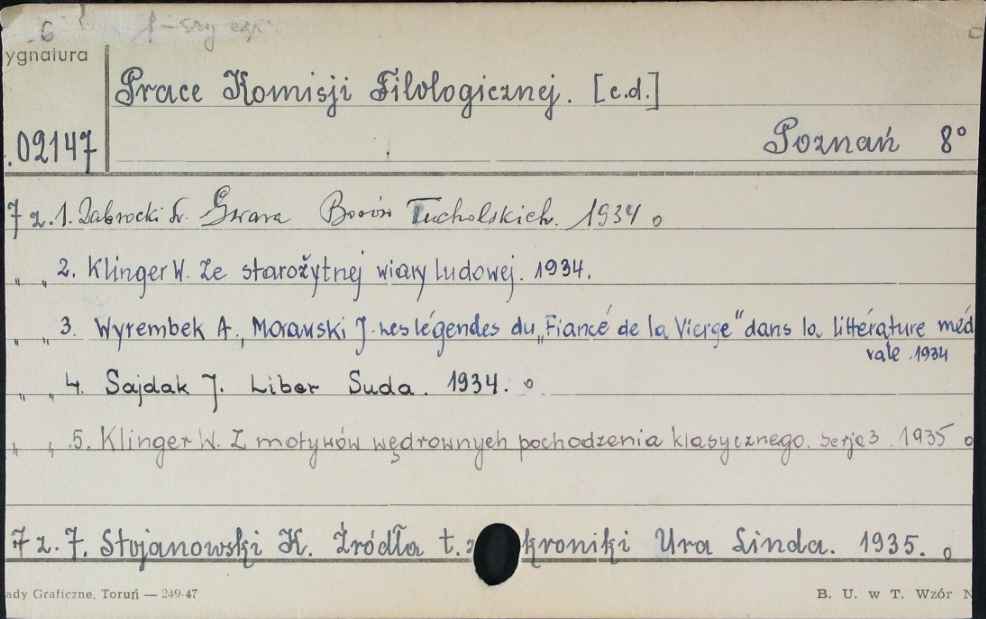 6 1-szy egz.
ygnatura
Prace Komisji Filologicznej. [c.d.]
.02147
Poznań 8°
7 z.1. Zabrocki L. Gwara Borów Tucholskich. 1934 o
" " 2. Klinger W. Ze starożytnej wiary ludowej. 1934.
" " 3. Wyrembek A., Morawski J. Les légendes du „Fiancé de la Vierge" dans la littérature méd
vale. 1934
" " 4. Sajdak J. Liber Suda. 1934. o
" " 5. Klinger W. Z motywów wędrownych pochodzenia klasycznego. Serja 3. 1935 o
7 z. 7. Stojanowski K. Źródła t. z kroniki Ura Linda. 1935. o
ady Graficzne, Toruń — 249-47
B. U. w T. Wzór N